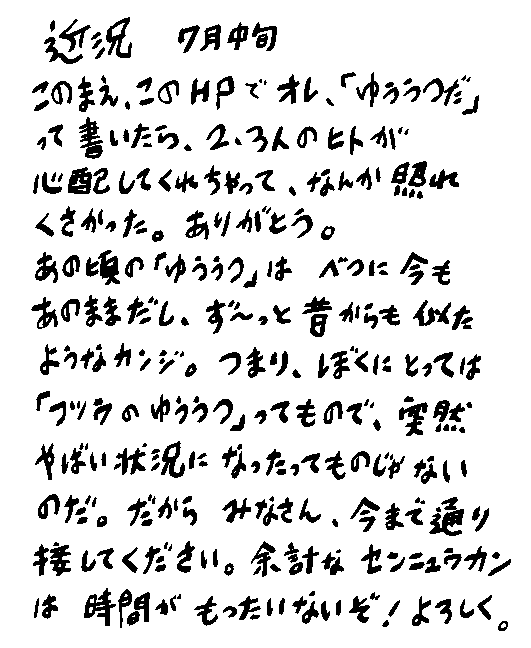 近況 7月中旬
このまえ、このHPでオレ、「ゆううつだ」
って書いたら、2、3人のヒトが
心配してくれちゃって、なんか照れ
くさかった。ありがとう。
あの頃の「ゆううつ」は べつに今も
あのままだし、ず〜っと昔からも似た
ようなカンジ。つまり、ぼくにとっては
「フツウのゆううつ」ってもので、突然
やばい状況になったってものじゃない
のだ。だから みなさん、今まで通り
接してください。余計な センニュウカン
は 時間が もったいないぞ!よろしく。